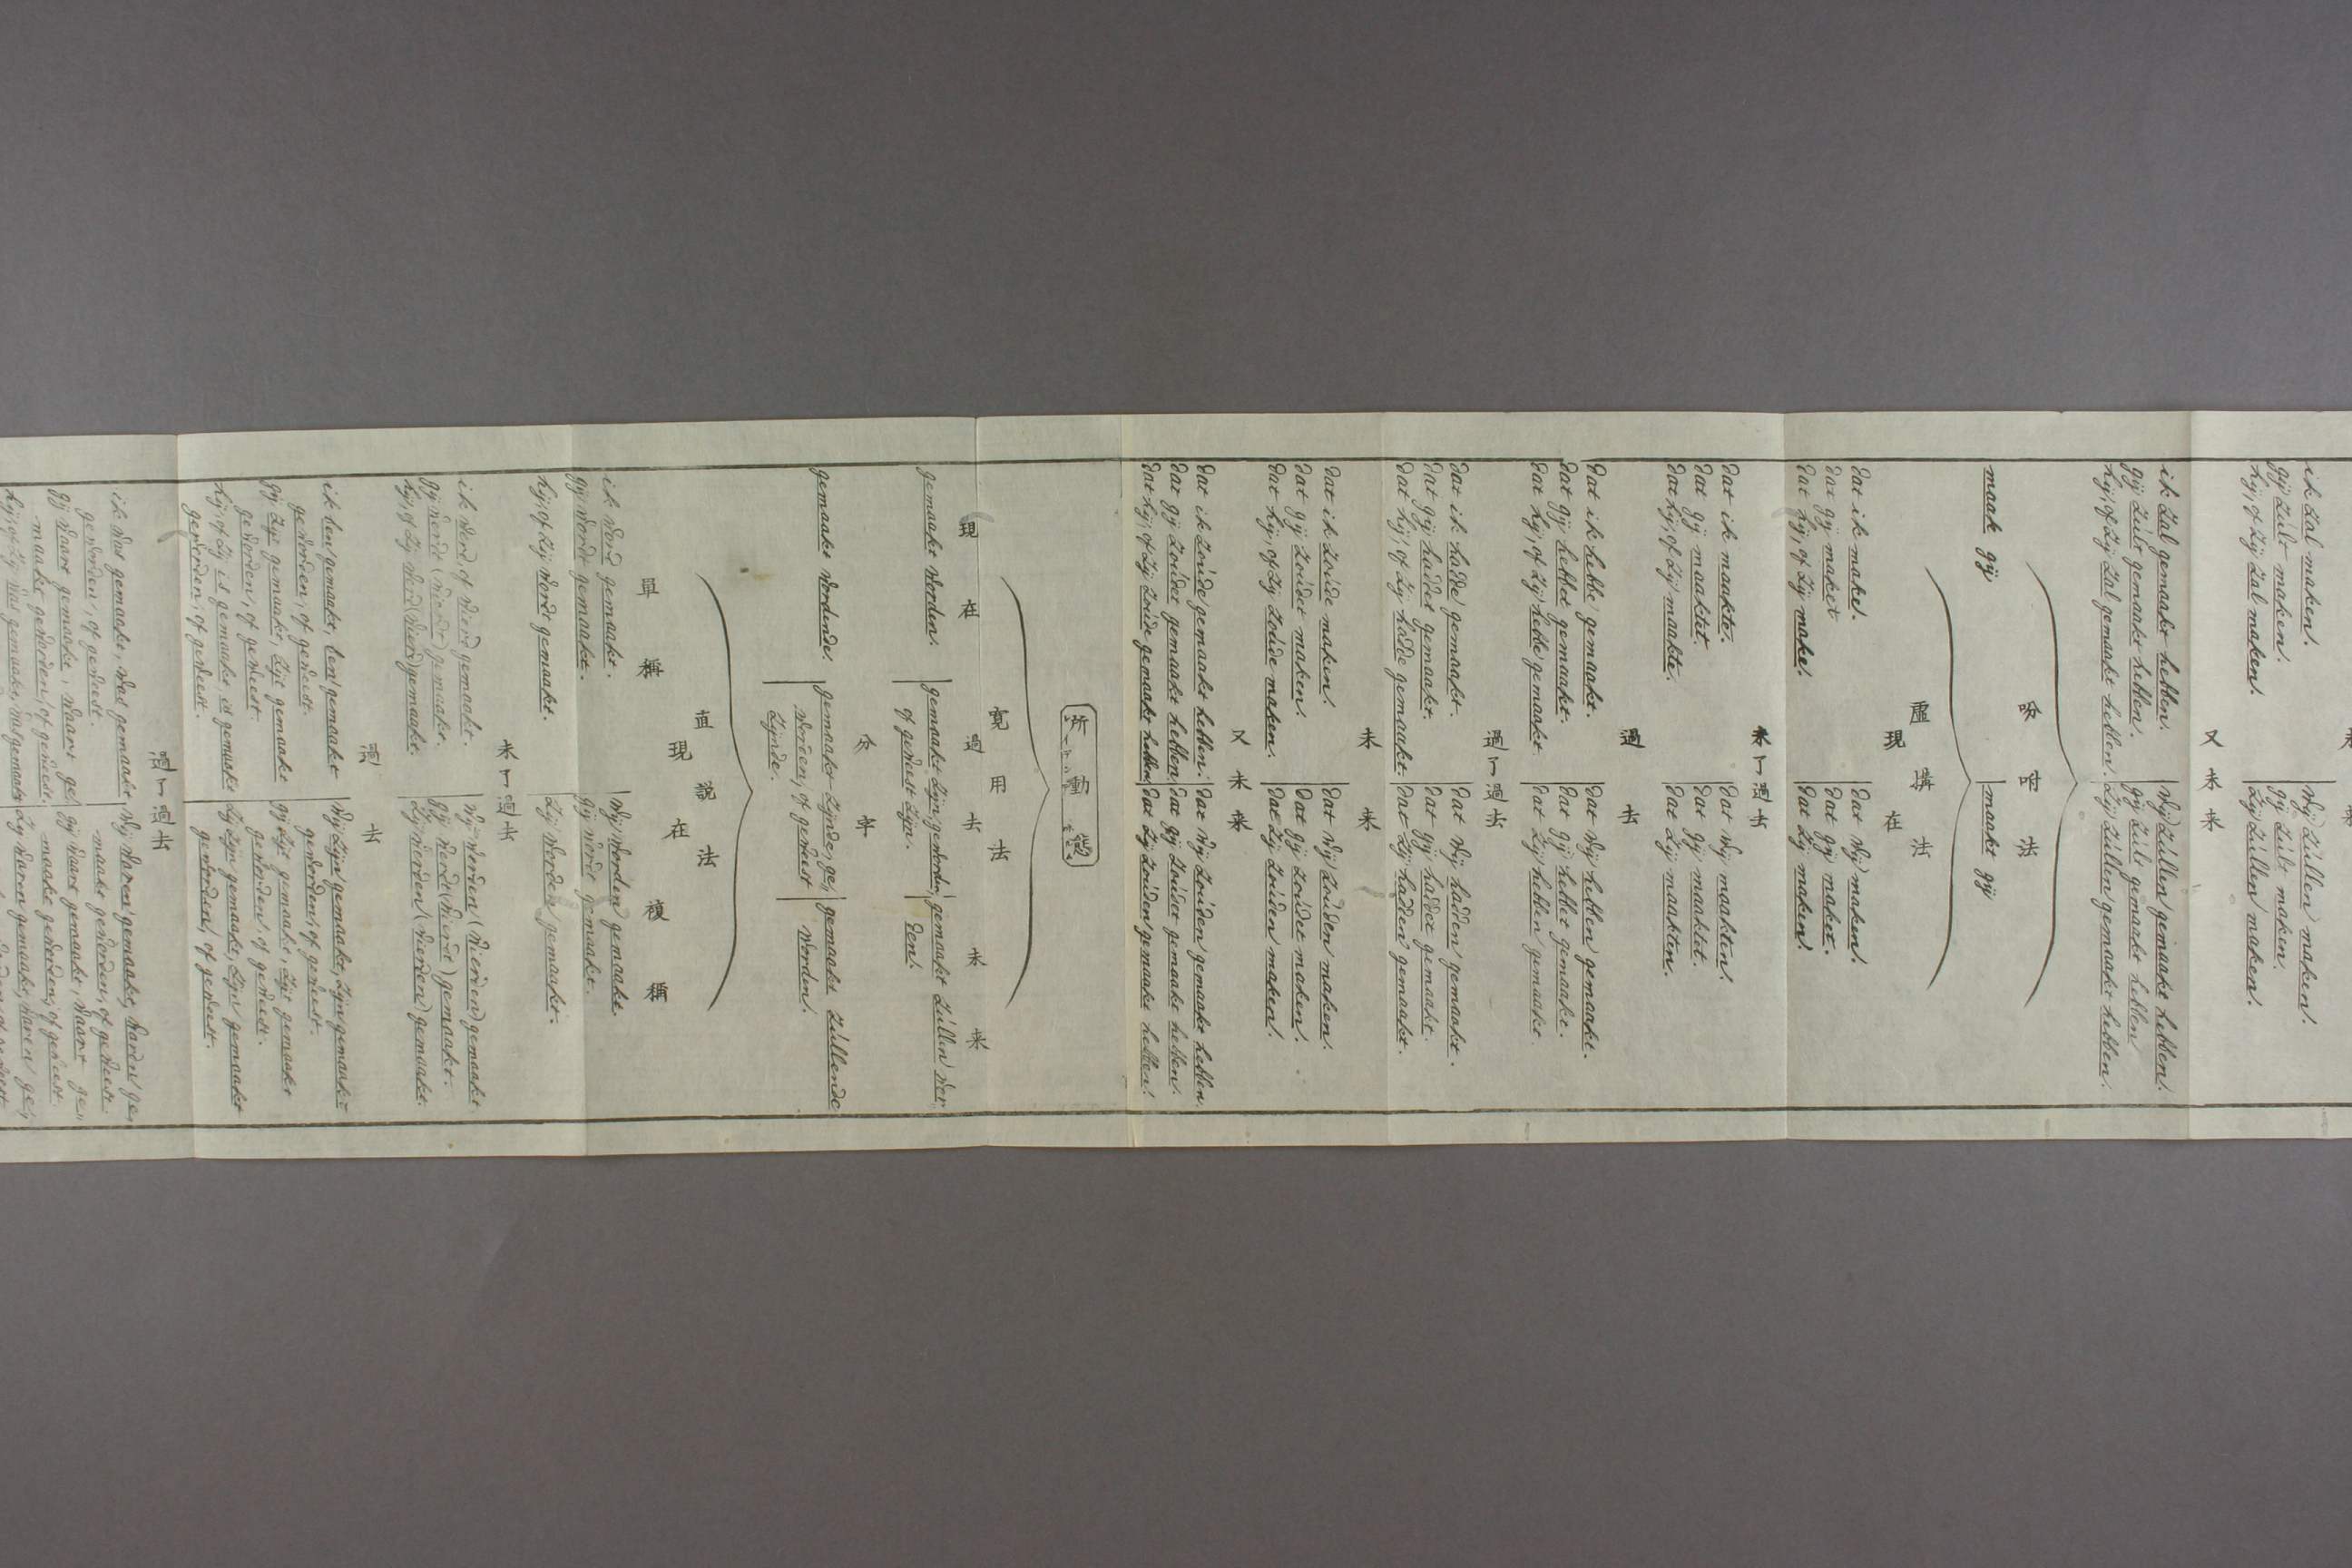 未来
ik zal maken. | wij zullen maken.
gij zult maken. | gij zult maken.
hij, of zij zal maken. | zij zullen maken.
又未来
ik zal gemaakt hebben. | wij zullen gemaakt hebben.
gij zult gemaakt hebben. | gij zult gemaakt hebben
hij, of zij zal gemaakt hebben. | zij zullen gemaakt hebben.
吩咐法
maak gij | maakt gij
虚搆法
現在
dat ik make. | dat wij maken.
dat gij maket | dat gij maket.
dat hij, of zij make. | dat zij maken.
未了過去
dat ik maakte. | dat wij maakten.
dat gij maaktet. | dat gij maaktet.
dat hij, of zij maakte. | dat zij maakten.
過去
dat ik hebbe gemaakt. | dat wij hebben gemaakt.
dat gij hebbet gemaakt. | dat gij hebbet gemaakt.
dat hij, of zij hebbe gemaakt | dat zij hebben gemaakt
過了過去
dat ik hadde gemaakt. | dat wij hadden gemaakt.
dat gij haddet gemaakt. | dat gij haddet gemaakt.
dat hij, of zij hadde gemaakt. | dat zij hadden gemaakt.
未来
dat ik zoúde maken. | dat wij zoúden maken.
dat gij zoúdet maken. | dat gij zoúdet maken.
dat hij, of zij zoúde maken. | dat zij zoúden maken.
又未来
dat ik zoúde gemaakt hebben. | dat wij zoúden gemaakt hebben.
dat gij zoúdet gemaakt hebben | dat gij zoúdet gemaakt hebben.
dat hij, of zij zoúde gemaakt hebben | dat zij zoúden gemaakt hebben.
所動態
寛用法
現在 過去 未来
gemaakt worden. | gemaakt zijn geworden, | gemaakt zúllen wor
of geweest zijn. | den.
分字
gemaakt wordende. | gemaakt zijnde, ge, | gemaakt zúllende
worden, of geweest | worden.
zijnde.
直説法
現在
單稱 複稱
ik word gemaakt. | wij worden gemaakt.
gij wordt gemaakt. | gij wordt gemaakt.
hij, of zij wordt gemaakt. | zij worden gemaakt.
未了過去
ik werd, of wierd gemaakt. | wij werden (wierden) gemaakt
gij werdt (wierdt) gemaakt. | gij werdt (wierdt) gemaakt.
hij, of zij werd (wierd) gemaakt. | zij werden (wierden) gemaakt.
過去
ik ben gemaakt, ben gemaakt | wij zijn gemaakt, zijn gemaakt
geworden, of geweest. | geworden, of geweest.
gij zijt gemaakt, zijt gemaakt | gij zijt gemaakt, zijt gemaakt
geworden, of geweest. | geworden, of geweest.
hij, of zij is gemaakt, is gemaakt | zij zijn gemaakt, zijn gemaakt
geworden, of geweest. | geworden, of geweest.
過了過去
ik was gemaakt, was gemaakt | wij waren gemaakt, waren ge,
geworden, of geweest. | maakt geworden, of geweest.
gij waart gemaakt, waart ge | gij waart gemaakt, waart ge,
maakt geworden, of geweest. | maakt geworden, of geweest.
hij, of zij was gemaakt, was gemaakt | zij waren gemaakt, waren ge,